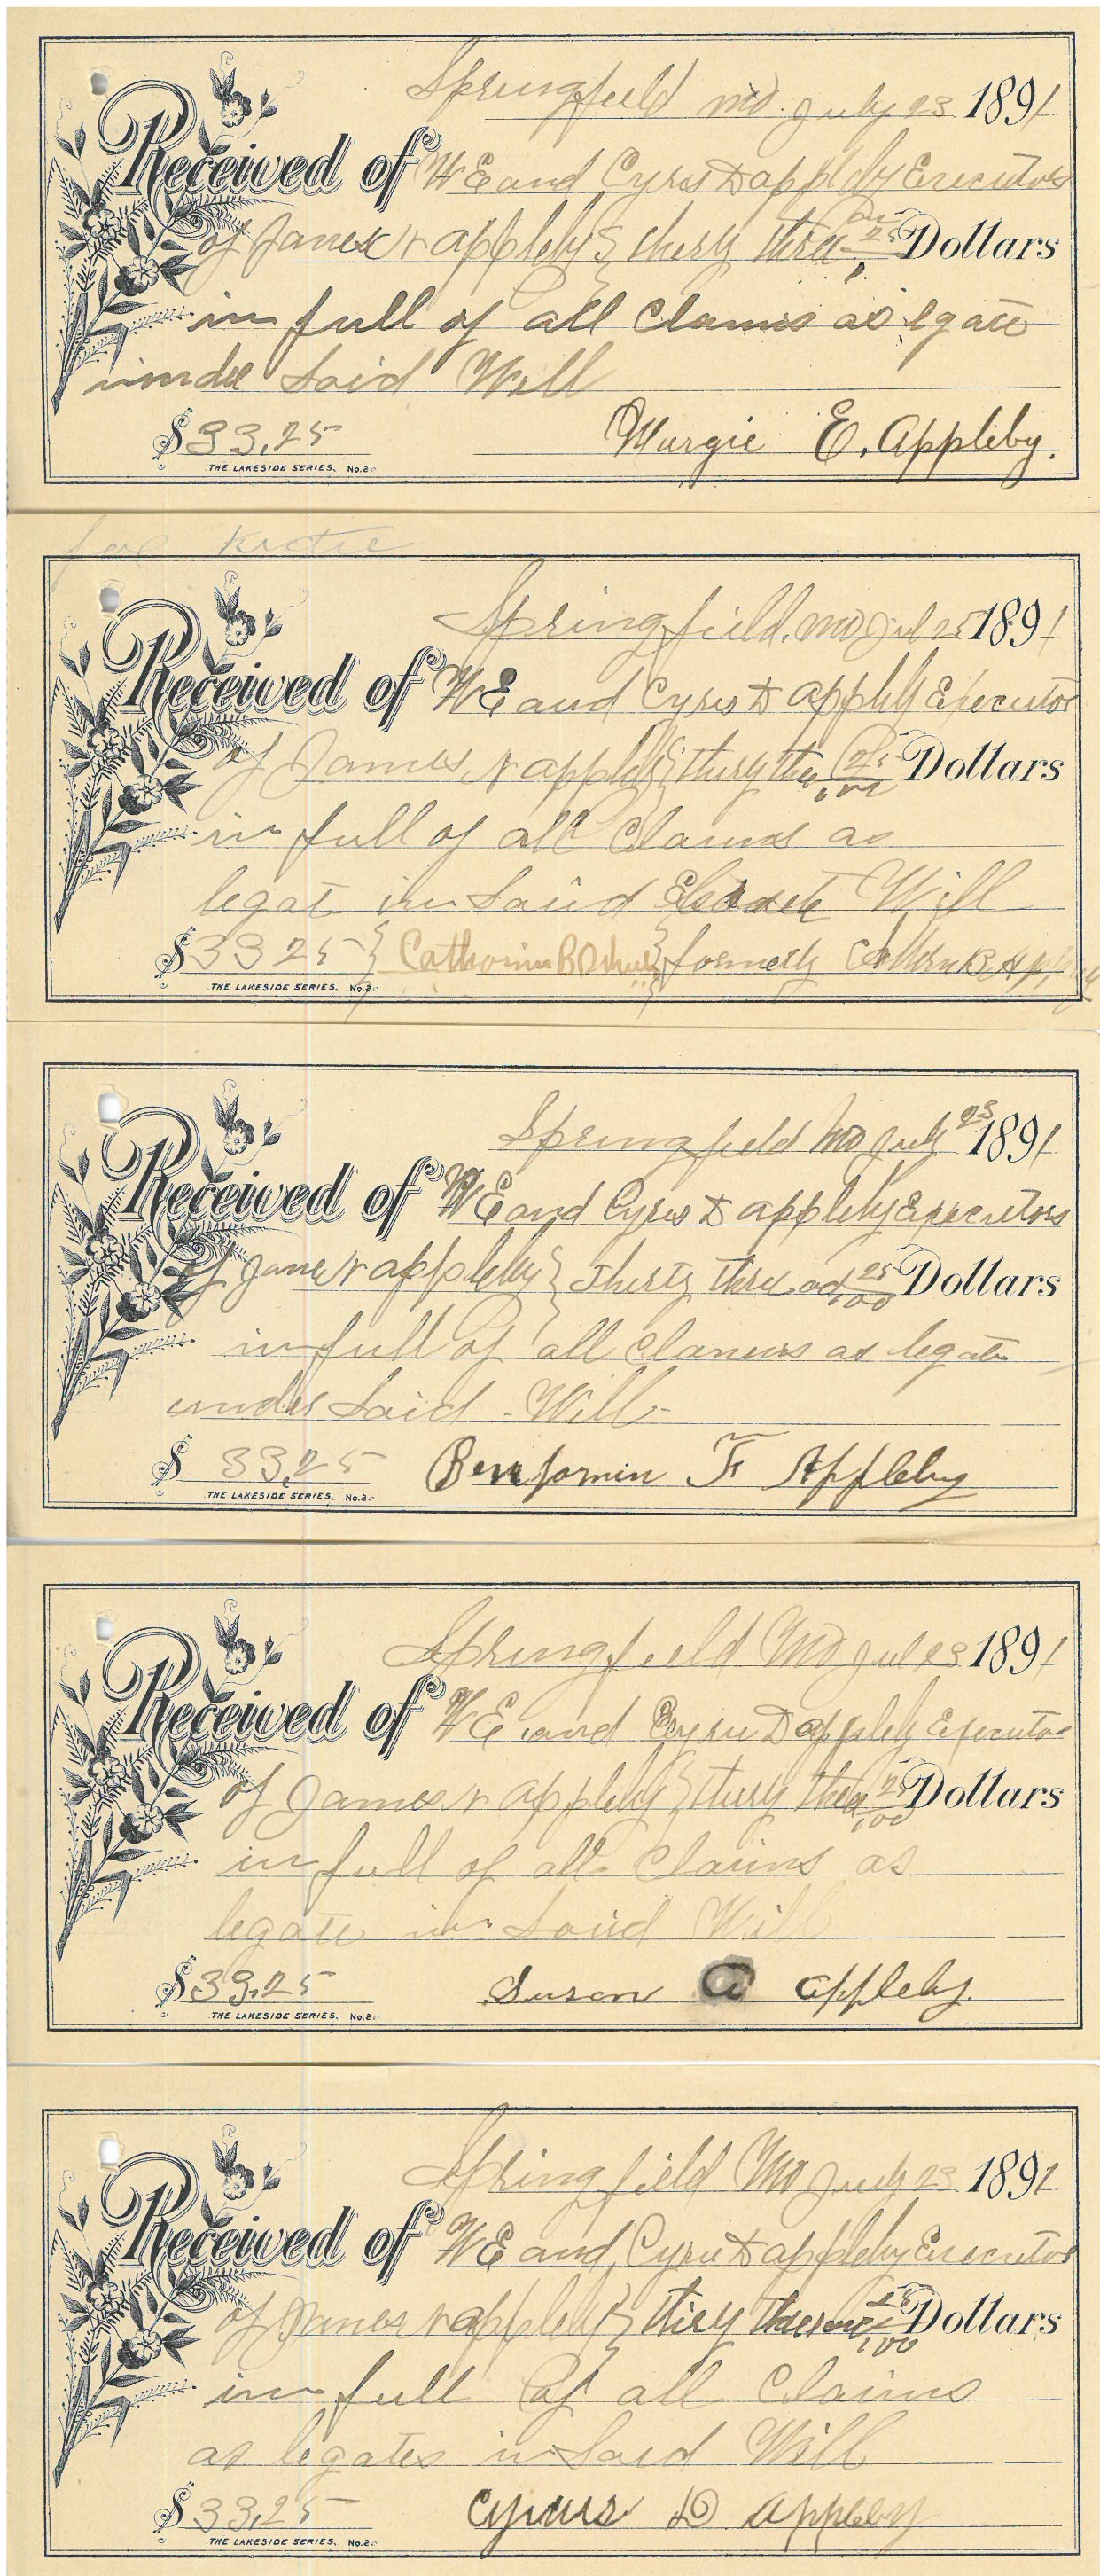 Springfield Mo. July 23 1891
Received of W E and Cyrus D appleby Executors
of James r appleby } thirty three 25 Dollars
in full of all Claims as legate
under Said Will
$33,25 Margie E. Appleby.
THE LAKESIDE SERIES. No.2.
for Katie
Springfield, Mo Jul 25 1891
Received of W E and Cyrus D appleby Executor
of James r appleby } thirty three 25/100 Dollars
in full of all Claims as
legat in Said Will
$33 25 } Catharine B } formerly
THE LAKESIDE SERIES. No.2.
Springfield Mo July 23 1891
Received of W E and Cyrus D appleby Executors
of James r appleby } thirty three ad 25/100 Dollars
in full of all Claims as legate
under Said - Will -
$ 33,25 Benjamin F Appleby
THE LAKESIDE SERIES. No.2.
Springfield Mo Jul 23 1891
Received of W E and Cyrus D appleby Executor
of James r appleby } thirty three 25/100 Dollars
in full of all Claims as
legate in Said Will
$33,25 Susan A appleby.
THE LAKESIDE SERIES. No.2.
Springfield Mo July 23 1891
Received of W E and Cyrus D appleby Executor
of James r appleby } thirty three 25/100 Dollars
in full of all Claims
as legates in Said Will
$33,25 Cyrus D appleby
THE LAKESIDE SERIES. No.2.